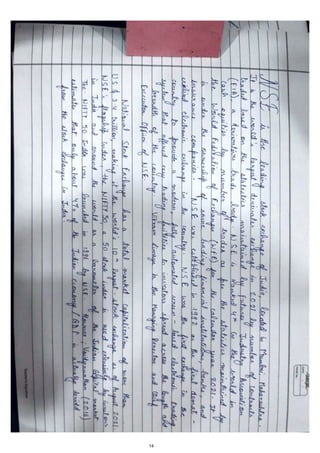 NSE is the leading stock exchange of India, located in Mumbai, Maharashtra.
It is the world largest derivative exchange in 2021 by number of contracts
traded based on the statistics maintained by Futures Industry Association
(FIA) a derivatives trade body. NSE is ranked 4th in the world in
cash equities by number of trades as per the statistics maintained by
the World Federation of Exchanges (WFE) for the calendar year 2021. It
is under the ownership of some leading financial institutions, banks, and
insurance companies. NSE was established in 1992 as the first demat-
erialized electronic exchange in the country. NSE was the first exchange in the
country to provide a modern, fully automated screen-based electronic trading
system that offered easy trading facilities to investors spread across the length and
breadth of the country. Vikram Limaye is the Managing Director and Chief
Executive Officer of NSE.
National Stock Exchange has a total market capitalization of more than
US $ 3.4 trillion, making it the world's 10th largest stock exchange as of August 2021.
NSE's flagship index, the NIFTY 50, a 50 stock index is used extensively by investors
in India and around the world as a barometer of the Indian capital market.
The NIFTY 50 index was launched in 1996 by NSE. However, Vaidyanathan (2016)
estimates that only about 4% of the Indian economy / GDP is actually derived
from the stock exchanges in India.
14